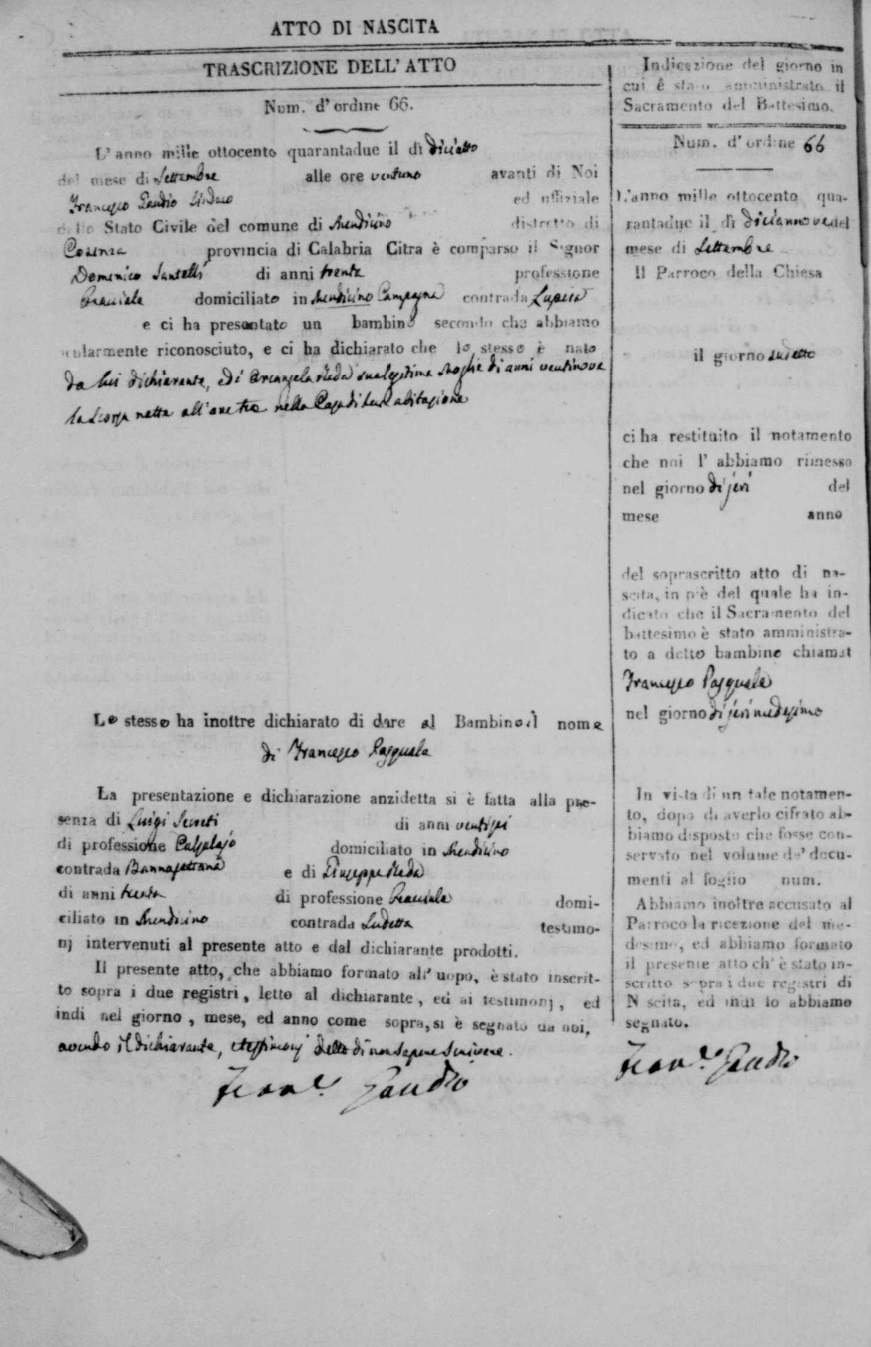 ATTO DI NASCITA
TRASCRIZIONE DELL' ATTO
Num. d'ordine 66.
L'anno mille ottocento quarantadue il dì diciotto
del mese di Settembre alle ore ventuno avanti di Noi
Francesco Gaudio Sindaco ed uffiziale
dello Stato Civile del comune di Mendicino distretto di
Cosenza provincia di Calabria Citra è comparso il Signor
Domenico Santelli di anni trenta professione
Bracciale domiciliato in Mendicino Campagna contrada
e ci ha presentato un bambino secondo che abbiamo
ocularmente riconosciuto, e ci ha dichiarato che lo stesso è nato
da lui dichiarante, e di Arcangela Reda sua legittima moglie di anni ventinove
la scorsa notte all'ore tre nella Casa di loro abitazione
Lo stesso ha inoltre dichiarato di dare al Bambino il nome
di Francesco Pasquale
La presentazione e dichiarazione anzidetta si è fatta alla pre-
senza di Luigi di anni
di professione Calzolajo domiciliato in Mendicino
contrada e di Giuseppe Reda
di anni trenta di professione Bracciale domi-
ciliato in Mendicino contrada testimo-
nj intervenuti al presente atto e dal dichiarante prodotti.
Il presente atto, che abbiamo formato all'uopo, è stato inscrit-
to sopra i due registri, letto al dichiarante, ed ai testimonj, ed
indi nel giorno, mese, ed anno come sopra, si è segnato da noi,
avendo il dichiarante, e testimonj detto di non sapere scrivere.
Fran.co Gaudio
Indicazione del giorno in
cui è stato amministrato il
Sacramento del Battesimo.
Num. d'ordine 66
L'anno mille ottocento qua-
rantadue il dì diciannove del
mese di Settembre
Il Parroco della Chiesa
il giorno sudetto
ci ha restituito il notamento
che noi l' abbiamo rimesso
nel giorno di jeri del
mese anno
del soprascritto atto di na-
scita, in piè del quale ha in-
dicato che il Sacramento del
battesimo è stato amministra-
to a detto bambino chiamat
Francesco Pasquale
nel giorno di jeri medesimo
In vista di un tale notamen-
to, dopo di averlo cifrato ab-
biamo disposto che fosse con-
servato nel volume de' docu-
menti al foglio num.
Abbiamo inoltre accusato al
Parroco la ricezione del me-
desimo, ed abbiamo formato
il presente atto ch'è stato in-
scritto sopra i due registri di
Nascita, ed indi lo abbiamo
segnato.
Fran.co Gaudio